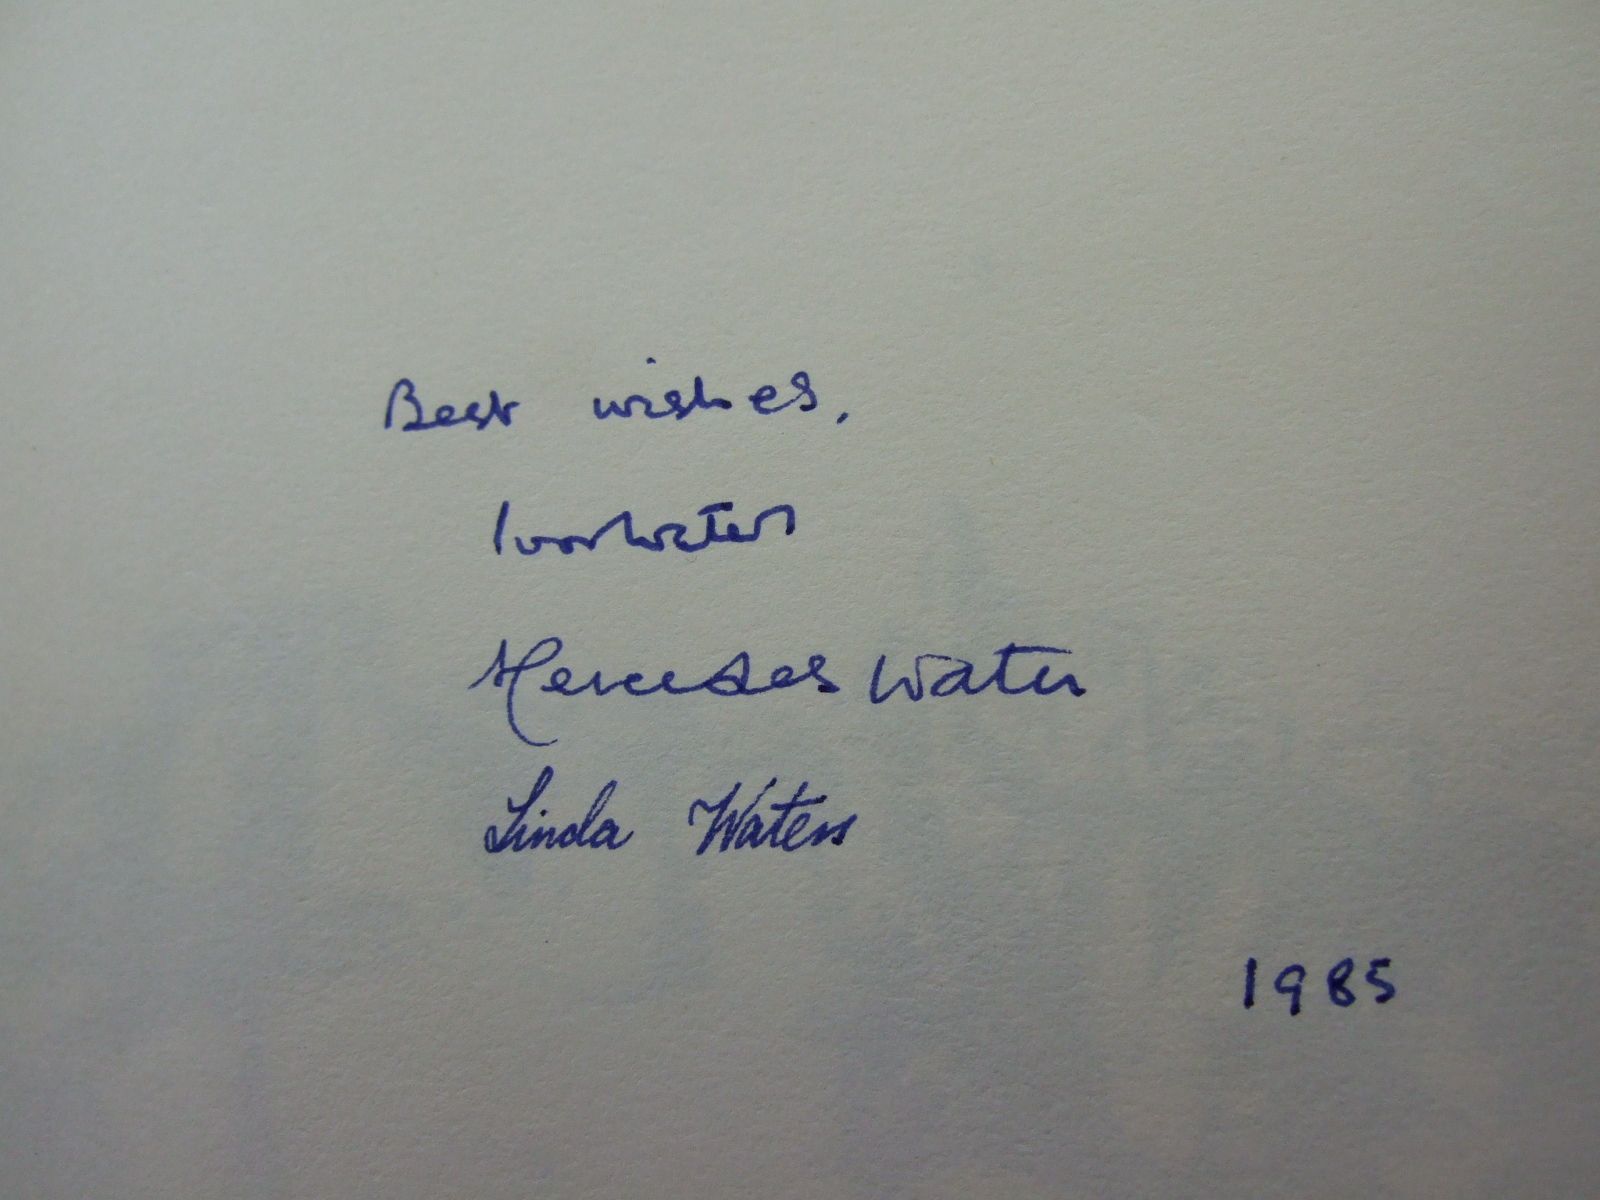 Best wishes,
Ivor Waters
Mercedes Waters
Linda Waters
1985